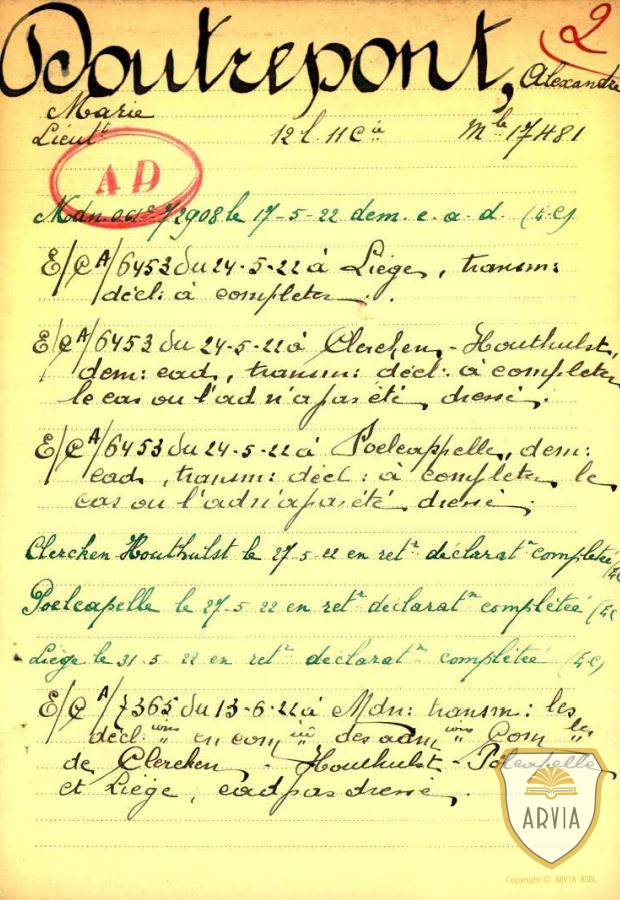 2
Doutrepont, Alexandre
Marie
Lieutt 12 l. 11 Cie Mle 17481
AD
Mdn. 2908 le 17-5-22 dem. c. a. d. (EC)
E/CA/6453 du 24-5-22 à Liége, transm:
décl: à completer.
E/CA/6453 du 24-5-22 à Clercken-Houthulst,
dem: cad, transm: décl: à completer
le cas ou l'ad n'a pas été dressé.
E/CA/6453 du 24-5-22 à Poelcappelle, dem:
cad, transm: décl: à completer le
cas ou l'ad n'a pas été dressé.
Clercken-Houthulst le 27-5-22 en retr déclaratn complétée (EC
Poelcapelle le 27-5-22 en retr déclaratn complétée (EC
Liège le 31-5-22 en retr déclaratn complétée (EC)
E/CA/7365 du 13-6-22 à Mdn: transm: les
décl: ions en com des adm ions Com les
de Clercken - Houthulst - Poelcapelle
et Liége, cad pas dressé.
ARVIA
Copyright © ARVIA ASBL